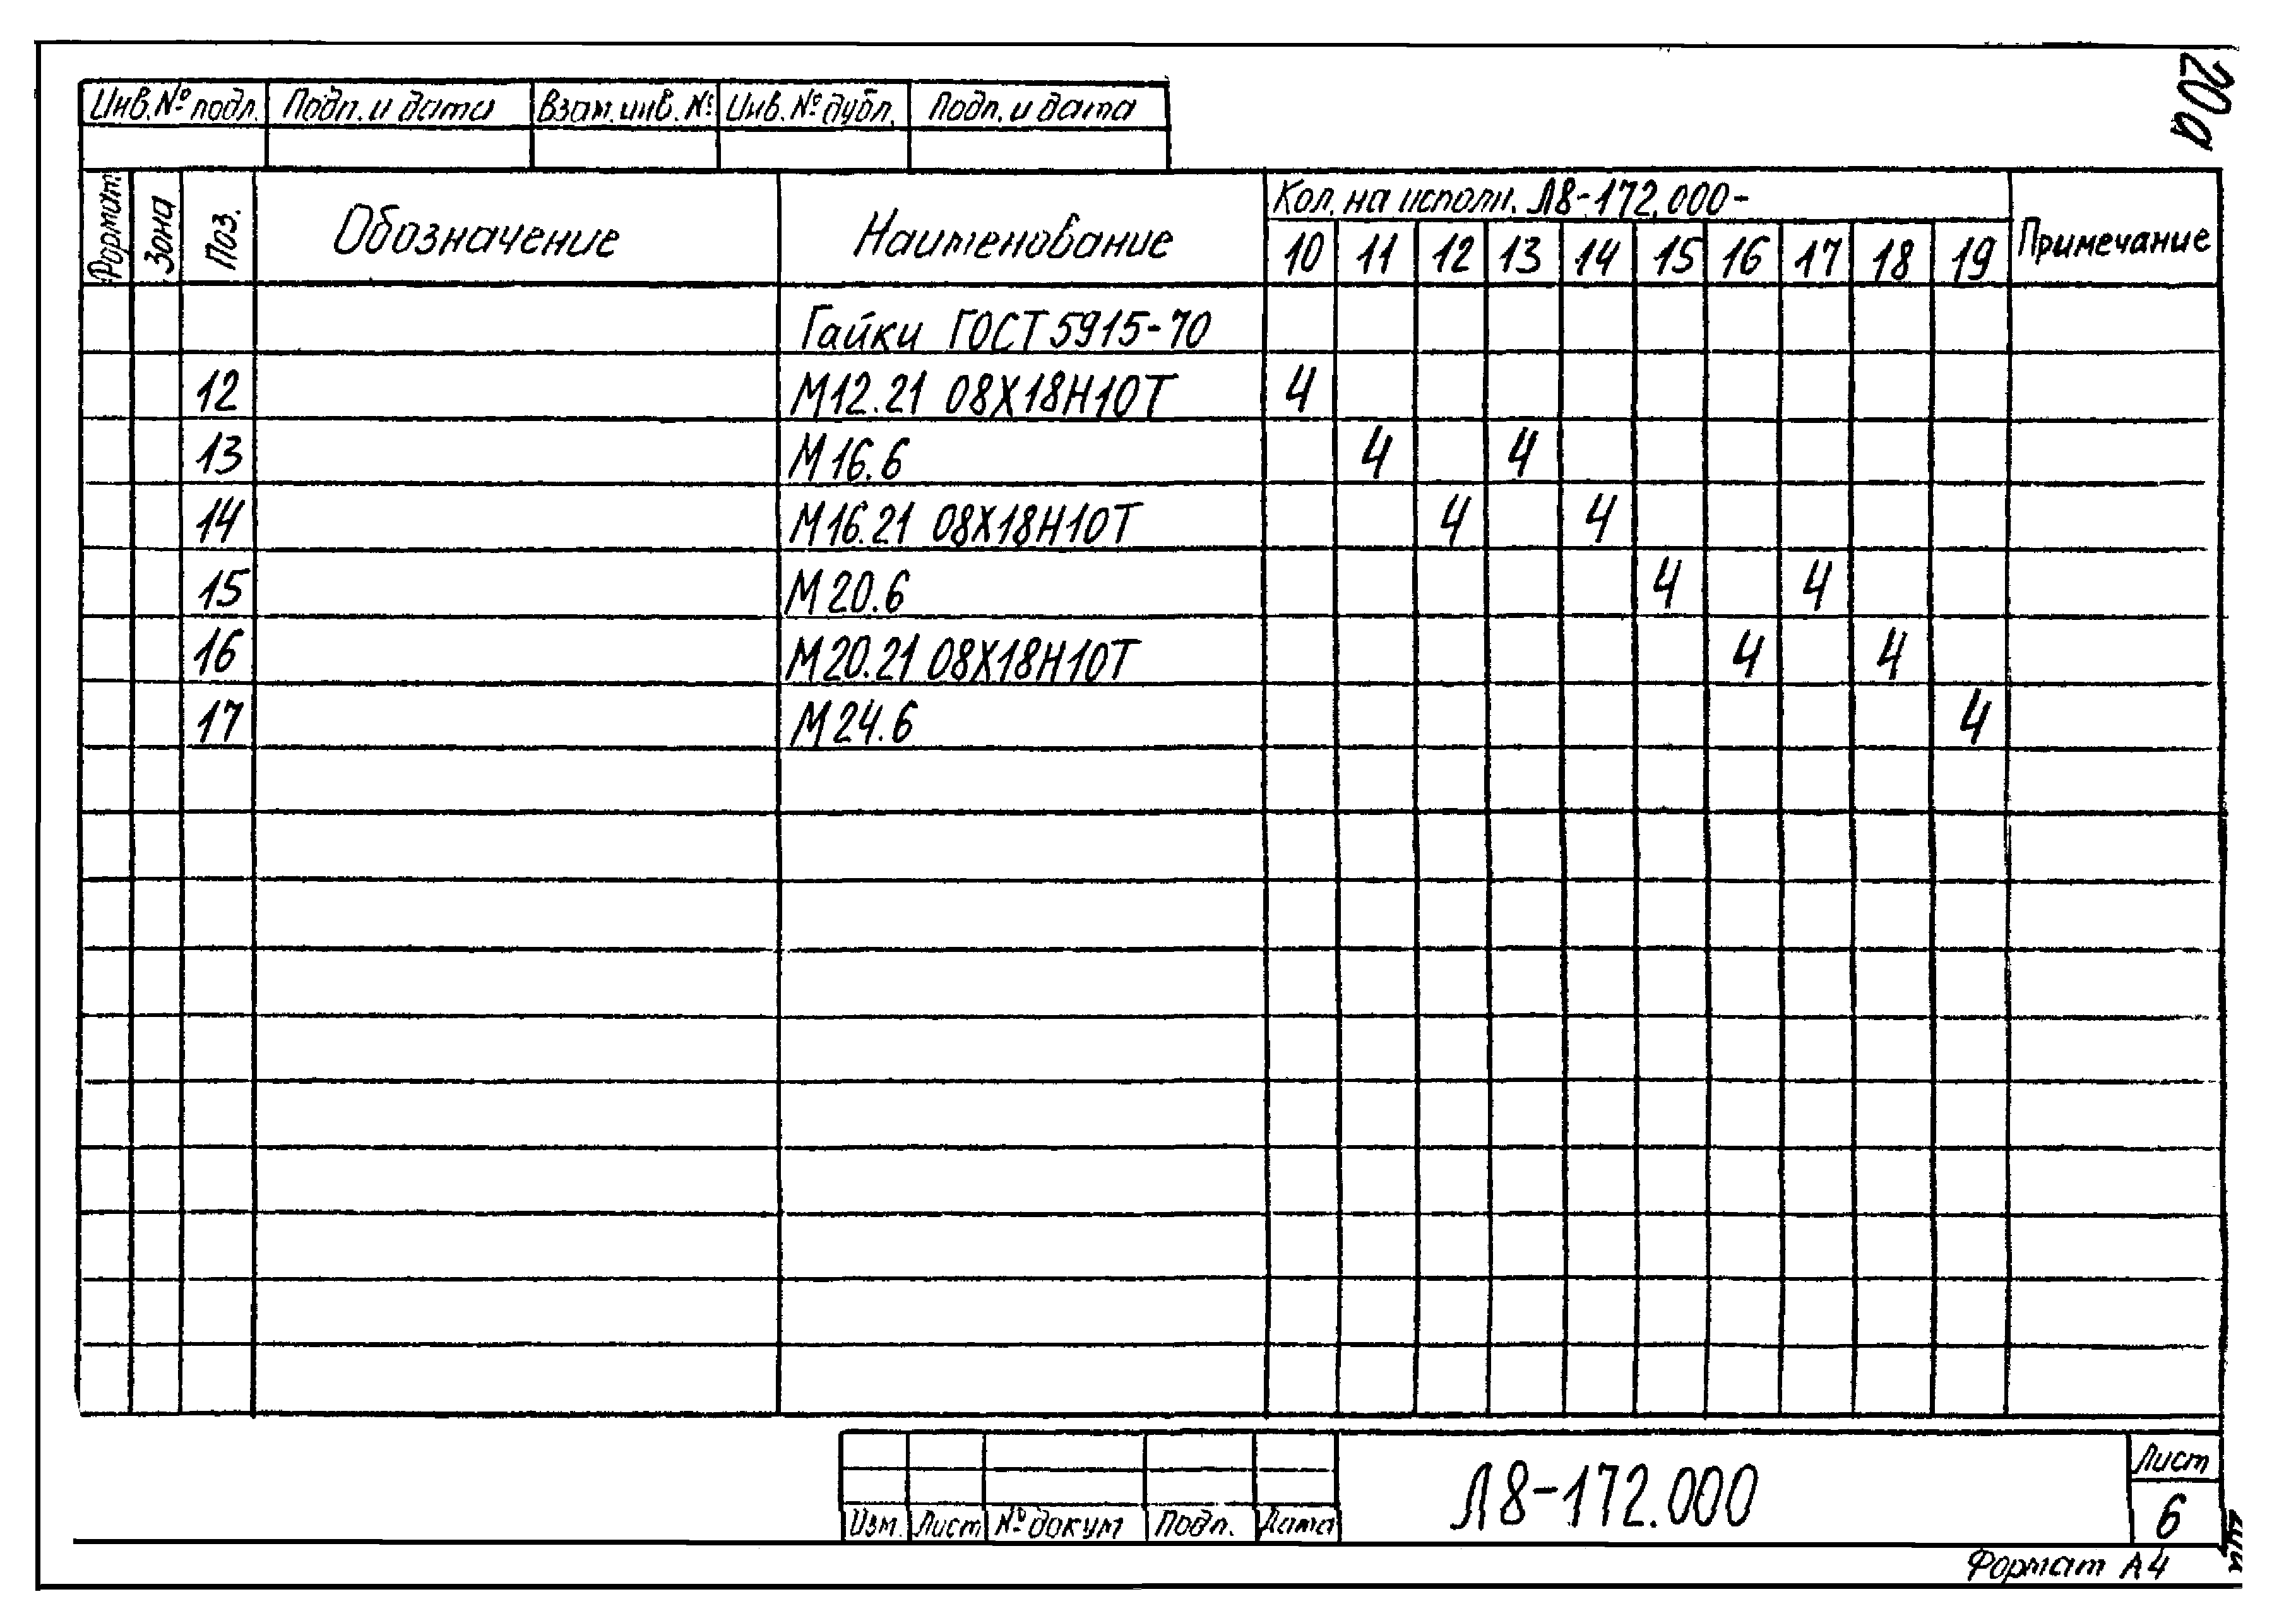 20а
Инв.№ подл. Подп. и дата Взам.инв.№ Инв.№ дубл. Подп. и дата
Формат Зона Поз. Обозначение Наименование Кол. на исполн. Л8-172.000- Примечание
10 11 12 13 14 15 16 17 18 19
Гайки ГОСТ 5915-70
12 М12.21 08Х18Н10Т 4
13 М16.6 4 4
14 М16.21 08Х18Н10Т 4 4
15 М20.6 4 4
16 М20.21 08Х18Н10Т 4 4
17 М24.6 4
Изм. Лист № докум Подп. Дата
Л8-172.000
Лист
6
Формат А4